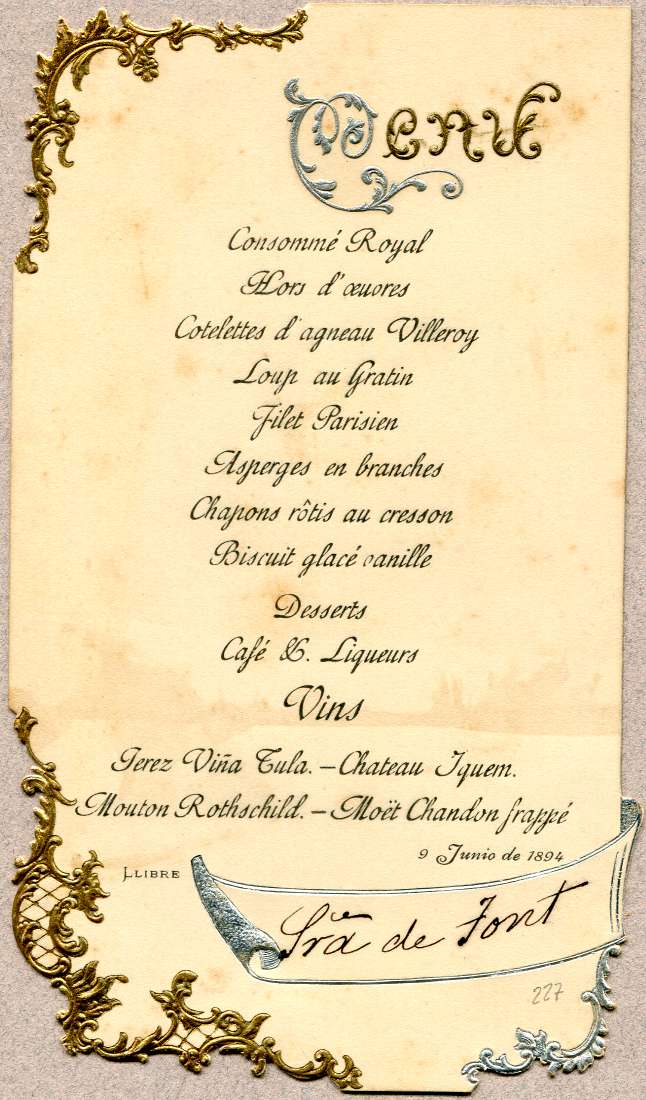 Menu
Consommé Royal
Hors d'œuvres
Cotelettes d'agneau Villeroy
Loup au Gratin
Filet Parisien
Asperges en branches
Chapons rôtis au cresson
Biscuit glacé vanille
Desserts
Café &. Liqueurs
Vins
Jerez Viña Tula. – Chateau Iquem.
Mouton Rothschild. – Moët Chandon frappé
9 Junio de 1894
LLIBRE
Sra de Font
227